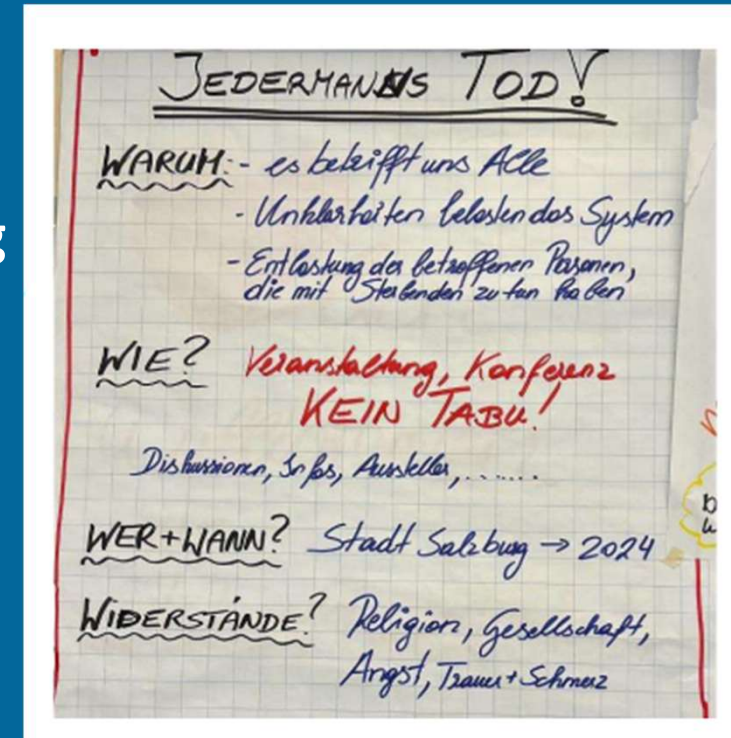 JEDERMANNS TOD!
WARUM: - es betrifft uns Alle
- Unklarheiten belasten das System
- Entlastung der betroffenen Personen,
die mit Sterbenden zu tun haben
WIE? Veranstaltung, Konferenz
KEIN TABU!
Diskussionen, Infos, Aussteller, .......
WER+WANN? Stadt Salzburg → 2024
WIDERSTÄNDE? Religion, Gesellschaft,
Angst, Trauer + Schmerz